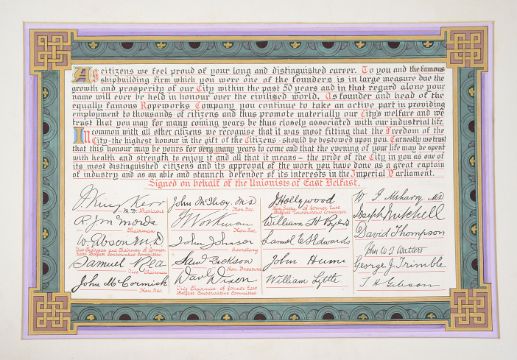 As citizens we feel proud of your long and distinguished career. To you and the famous
shipbuilding firm which you were one of the founders is in large measure due the
growth and prosperity of our City within the past 50 years and in that regard alone your
name will ever be held in honour over the civilised world. As founder and head of the
equally famous Ropeworks Company you continue to take an active part in providing
employment to thousands of citizens and thus promote materially our City's welfare and we
trust that you may for many coming years be thus closely associated with our industrial life.
In common with all other citizens we recognise that it was most fitting that the Freedom of the
City the highest honour in the gift of the Citizens should be bestowed upon you. Earnestly we trust
that this honour may be yours for very many years to come and that the evening of your life may be spent
with health and strength to enjoy it and all that it means – the pride of the City in you as one of
its most distinguished citizens and its approval of the work you have done as a great captain
of industry and as an able and staunch defender of its interests in the Imperial Parliament.
Signed on behalf of the Unionists of East Belfast.
Kerr
John McIlroy M.D.
J Hollywood
R. Jas McMordie
J Workman
William H
W. Gibson M.D.
John Johnson
Samuel C Edwards
David Thompson
Samuel Rea
Saml Jackson
John Hume
John W. J. Watters
David Dixon
George J. Trimble
John McCormick
William Lyttle
T H Gibson